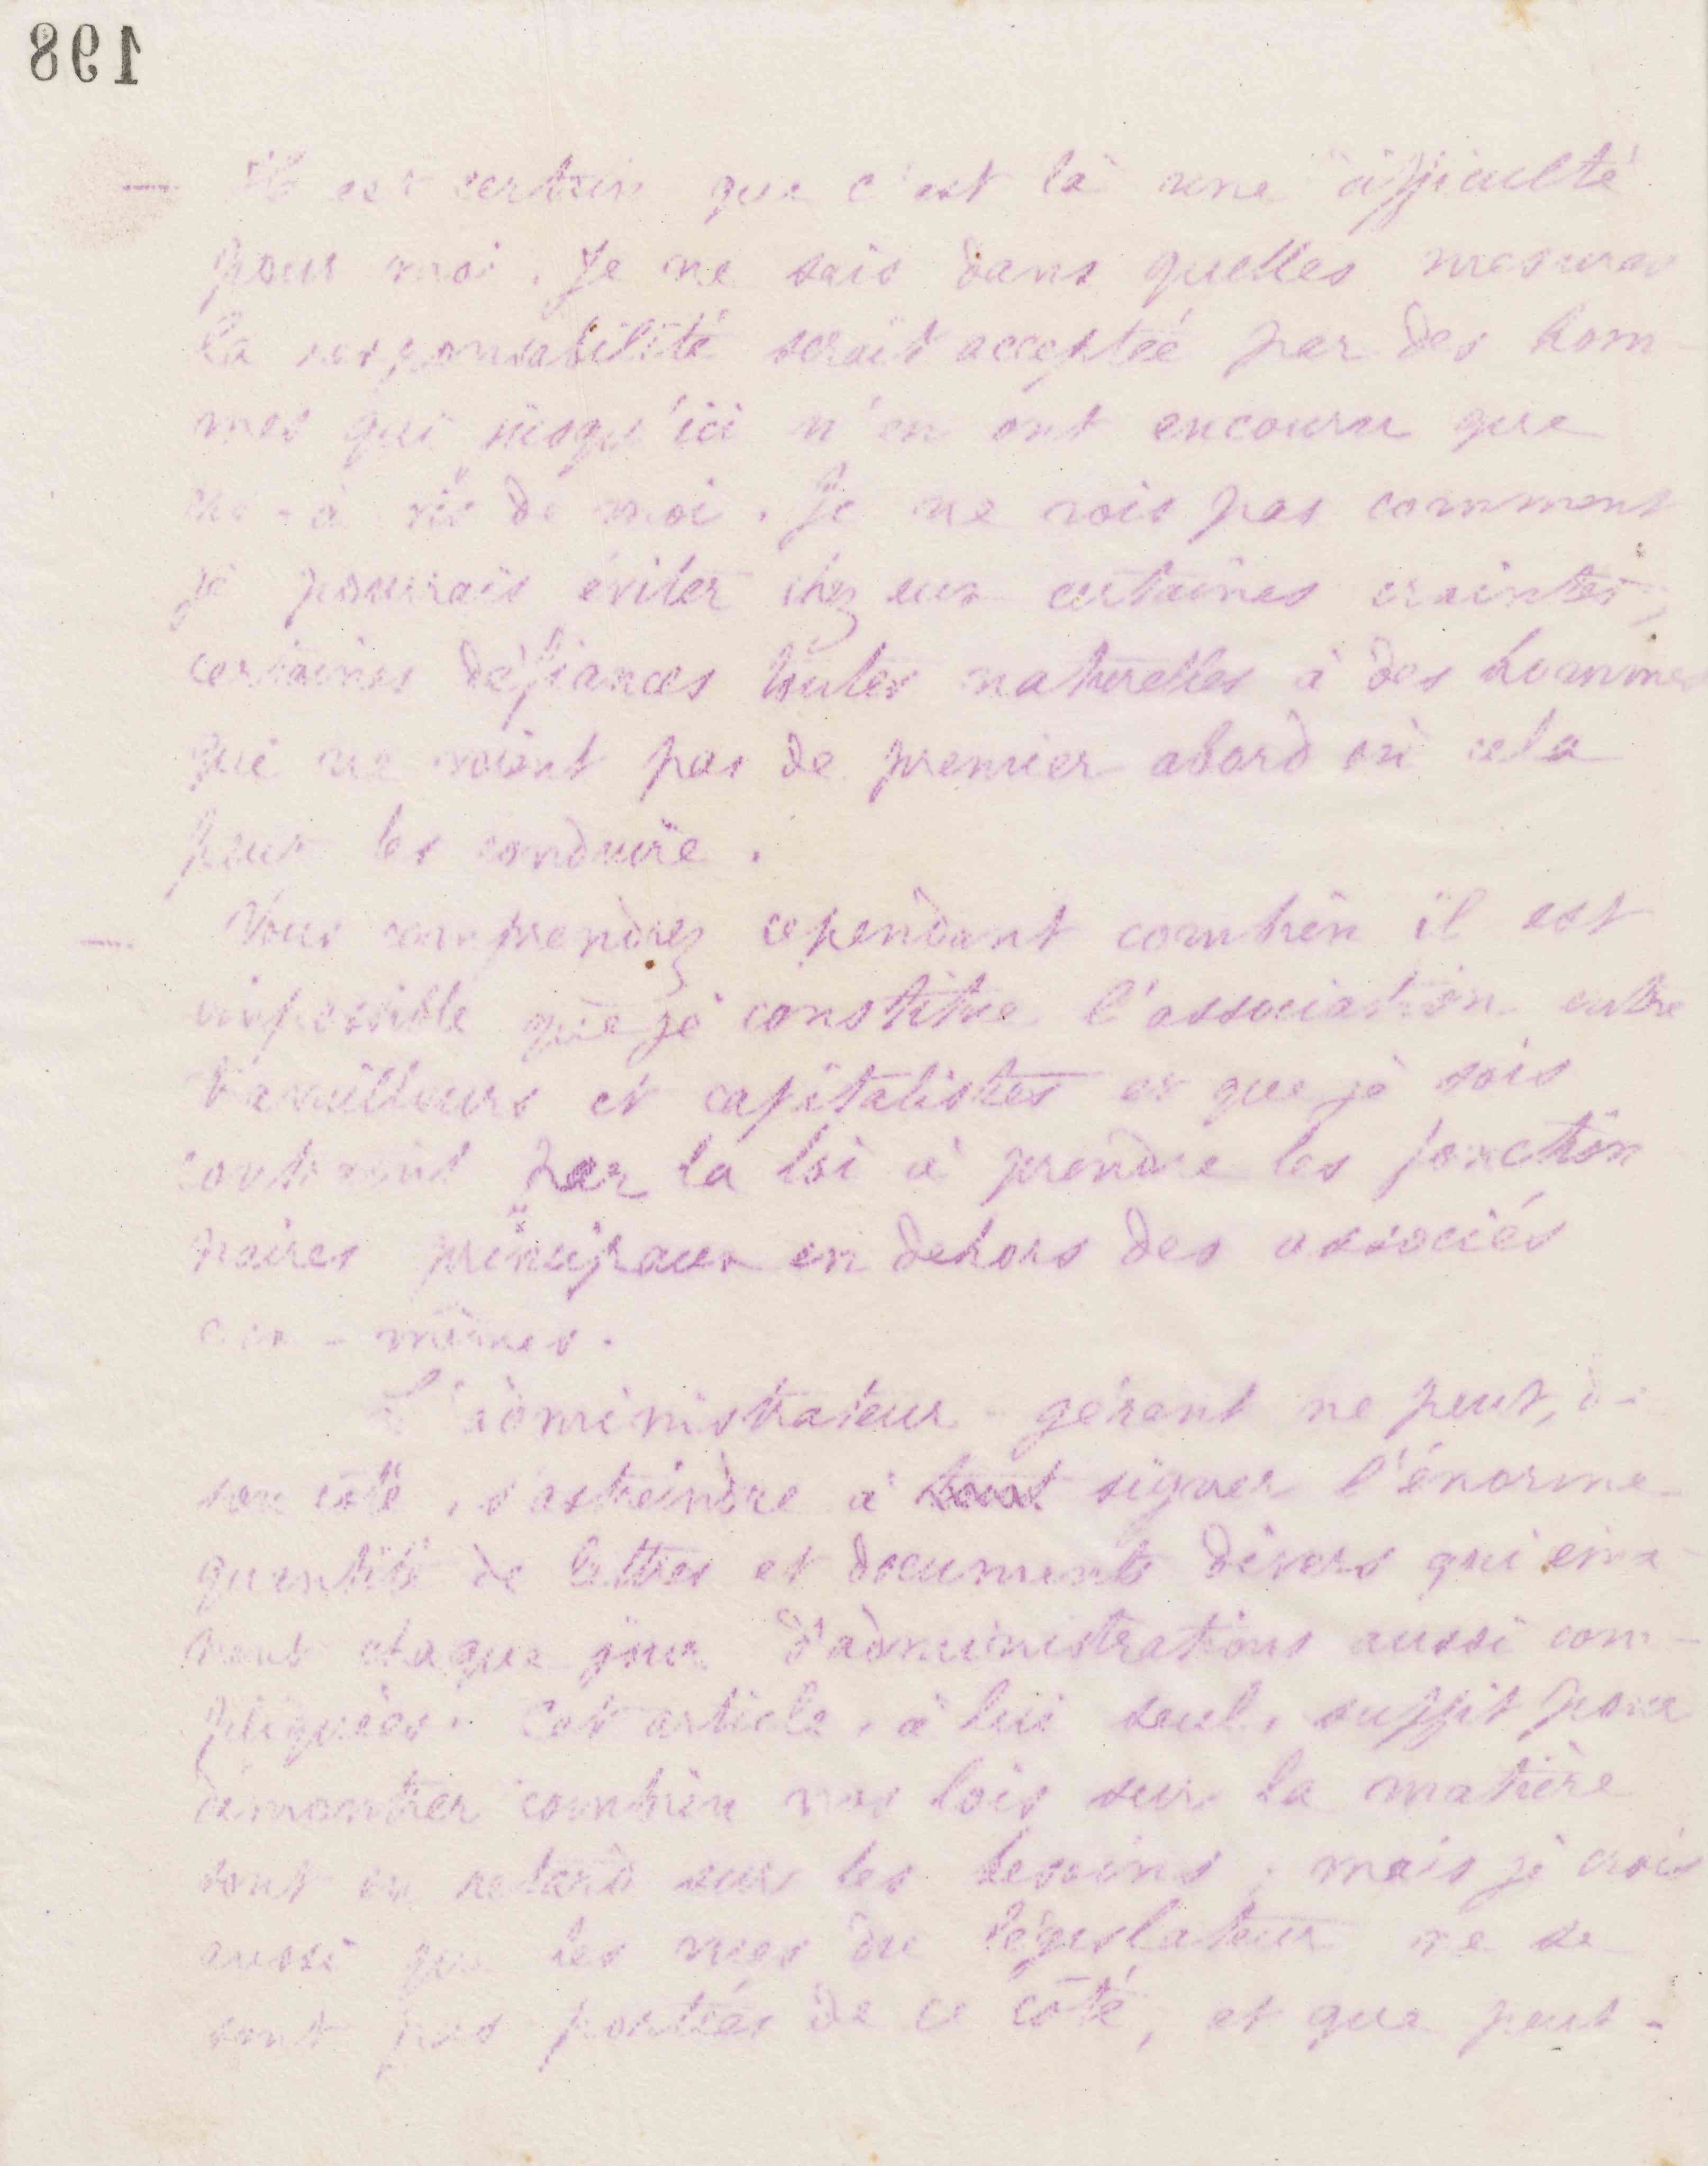 198
— Il est certain que c'est là une difficulté
pour moi. Je ne sais dans quelles mesures
la responsabilité serait acceptée par des hom-
mes qui jusqu'ici n'en ont encouru que
vis-à-vis de moi. Je ne vois pas comment
je pourrais éviter chez eux certaines craintes,
certaines défiances toutes naturelles à des hommes
qui ne voient pas de premier abord où cela
peut les conduire.
— Vous comprendrez cependant combien il est
impossible que je constitue l'association entre
travailleurs et capitalistes et que je sois
contraint par la loi à prendre les fonction
naires principaux en dehors des associés
eux-mêmes.
L'administrateur-gérant ne peut, de
son côté, s'astreindre à tout signer l'énorme
quantité de lettres et documents divers qui éma-
nent chaque jour d'administrations aussi com-
pliquées. Cet article, à lui seul, suffit pour
démontrer combien nos lois sur la matière
sont en retard sur les besoins; mais je crois
aussi que les vues du législateur ne se
sont pas portées de ce côté, et que peut-